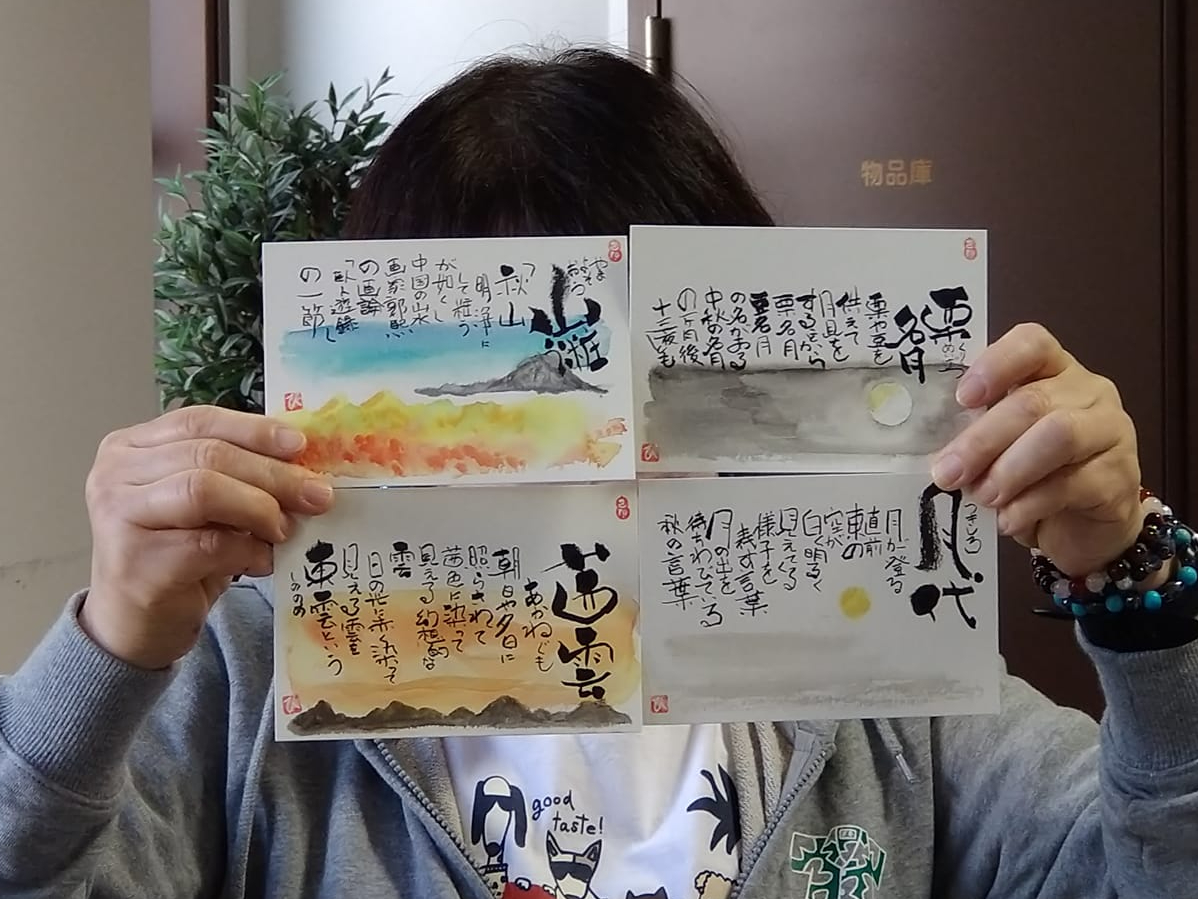 物品庫
山粧う
「秋山
明浄に
して粧う
が如し
中国の山水
画家郭熙
の画論
「臥遊録」
の一節
栗名月
栗や豆を
供えて
月見を
するから
栗名月
豆名月
の名がある
中秋の名月
の一ヶ月後
茜雲
あかねぐも
朝日や夕日に
照らされて
茜色に染って
見える幻想的な
雲
日の光に赤く染って
見える雲を
東雲という
しののめ
月代
つきしろ
月が登る
直前
東の
空が
白く明るく
見えてくる
様子を
表す言葉
月の出を
待ちわびている
秋の言葉
good
taste!